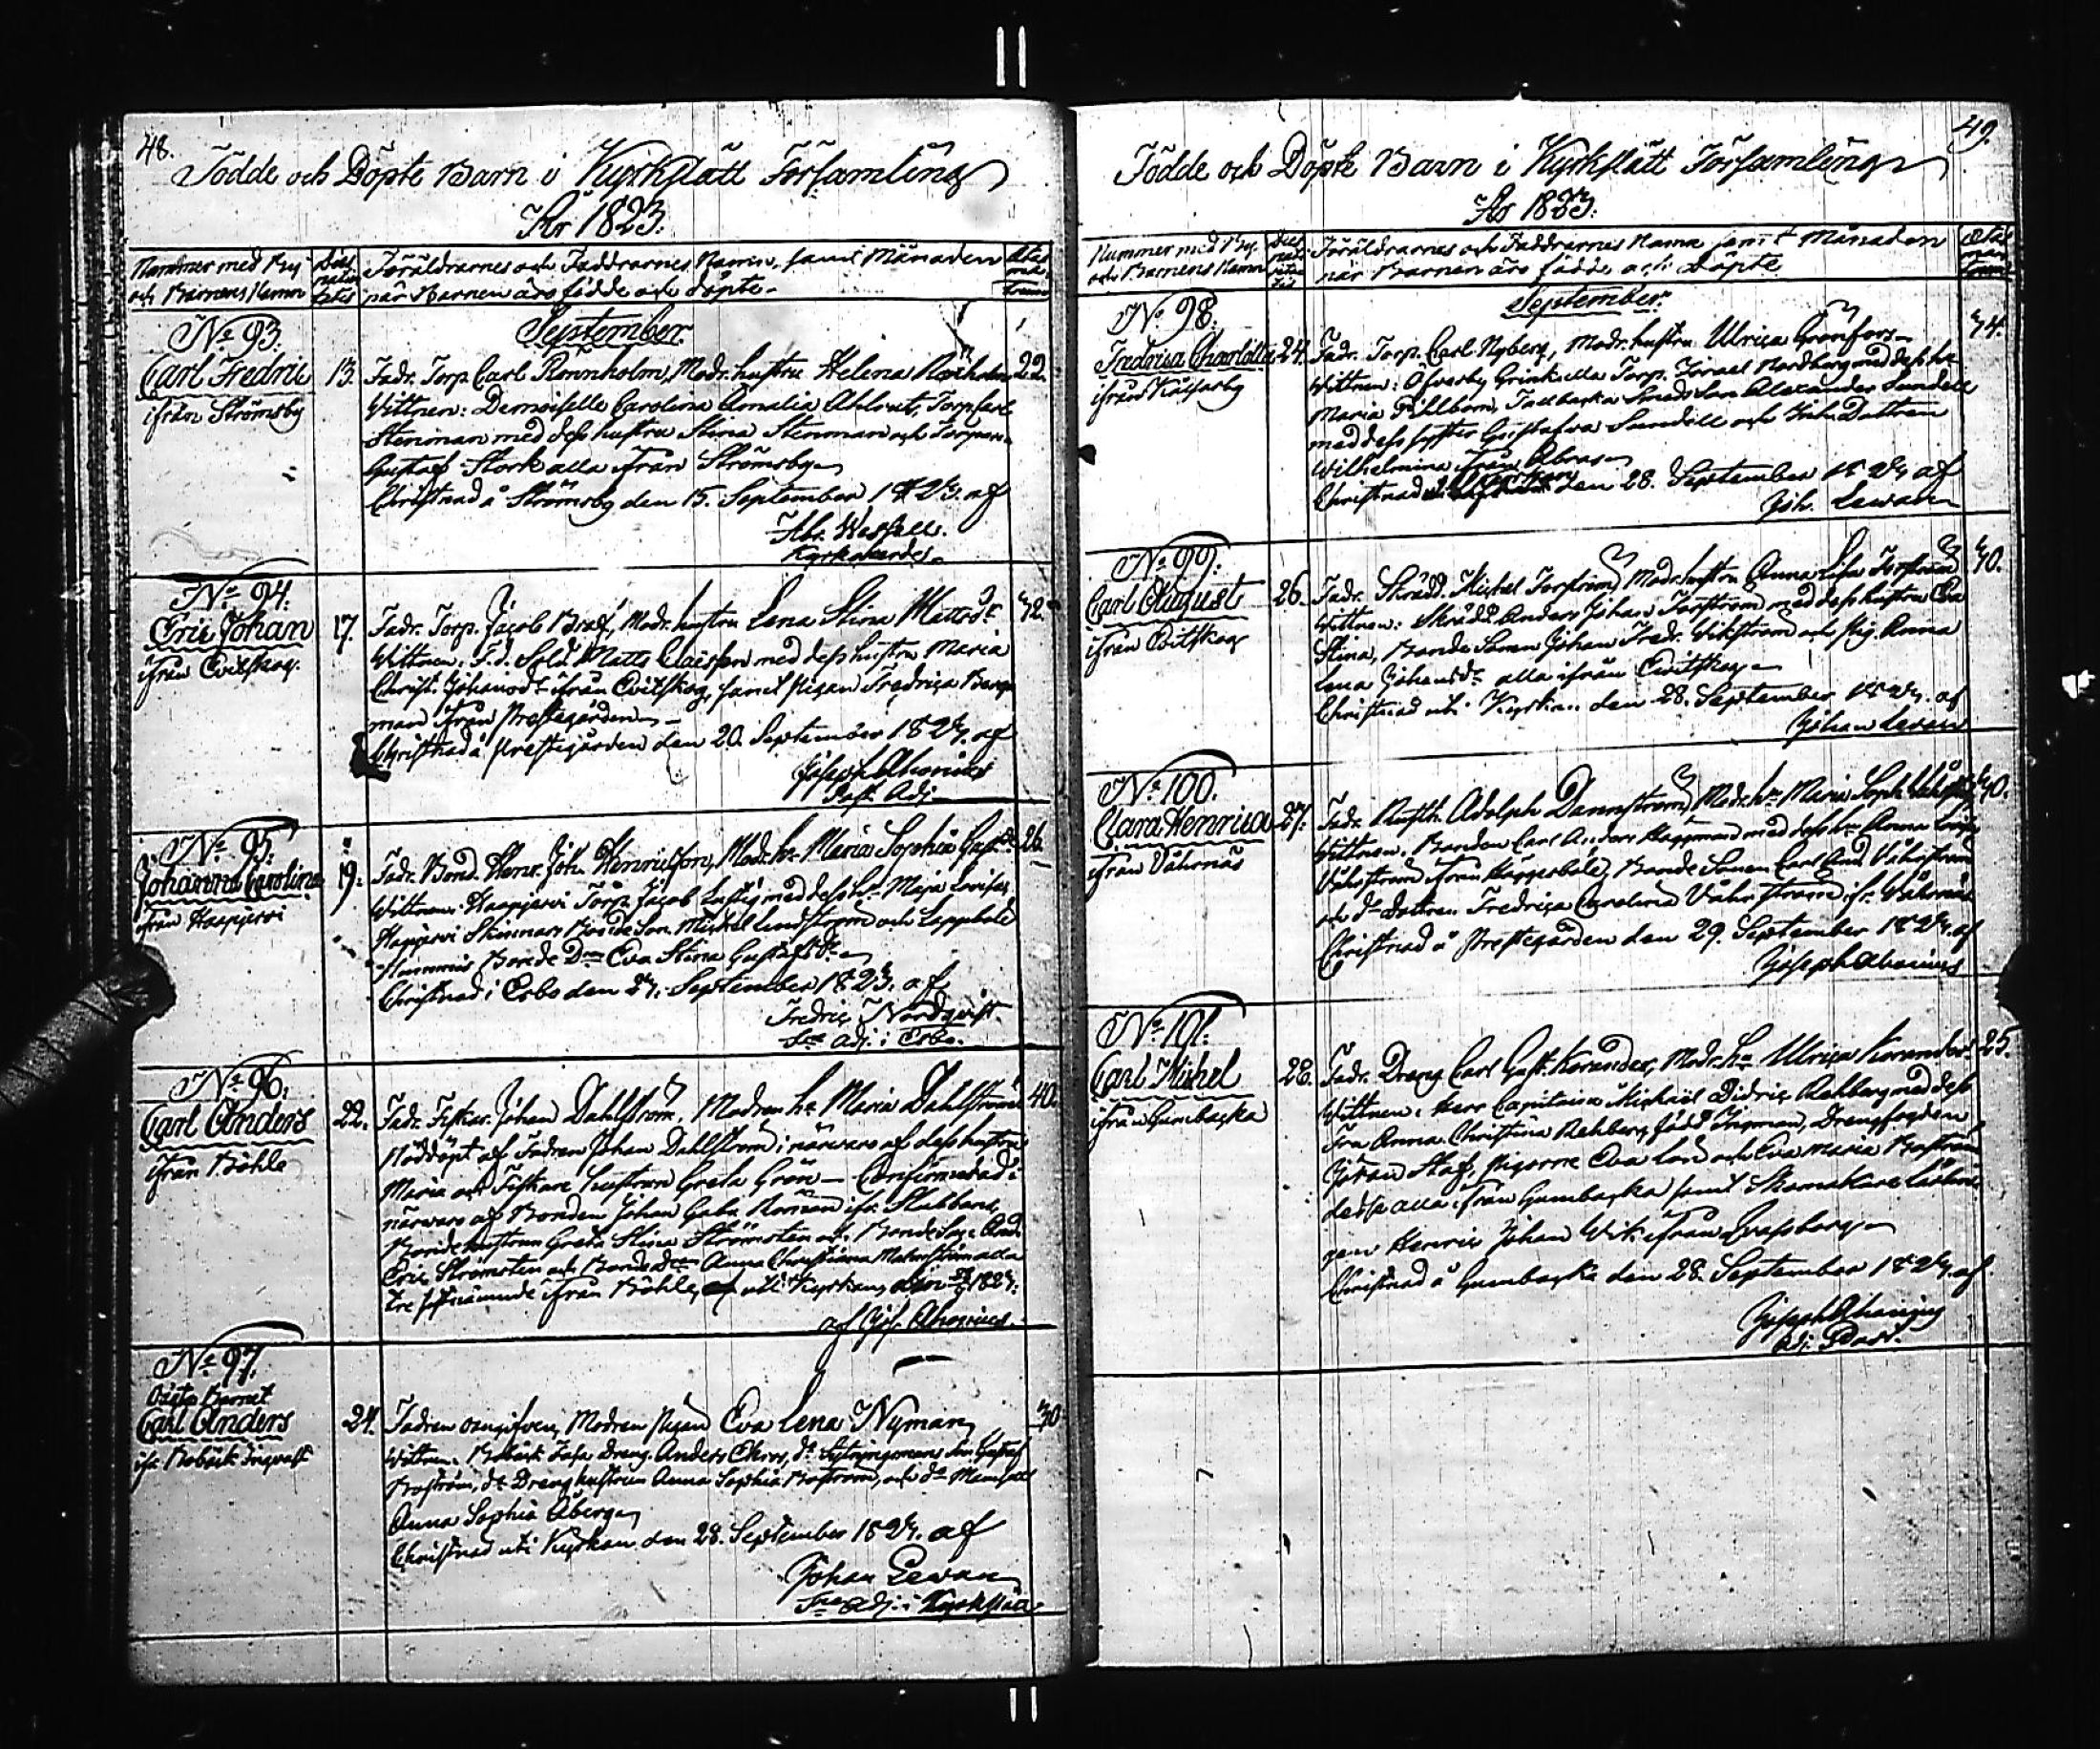 48.
Födde och Döpte Barn i Kyrkslätt Församling
År 1823.
Nummer med By
och Barnens Namn
Dies
nativi
tatis
Föräldrarnes och Faddrarnes Namn, samt Månaden
när Barnen äro födde och döpte.
Ætas
ma
trum
September.
No 93.
Carl Fredric
ifrån Strömsby
13.
Fadr. Torp. Carl Rönnholm, Modr. hustru Helena Rönholm
22.
Wittnen: Demoiselle Carolina Amalia Ahlrot, Torp. Carl
Stenman med dess hustru Stina Stenman och Torpar.
Gustaf Stork alla ifrån Strömsby
Christnad å Strömsby den 15. September 1823. af
Abr. Wessell.
Kyrkoherde.
No 94.
Eric Johan
ifrån Evitskog.
17.
Fadr. Torp. Jacob Braf, Modr. hustru Lena Stina Mattsdr
32.
Wittnen: F.d. Sold. Matts Claësson med dess hustru Maria
Christ. Johansdr ifrån Evitskog, samt pigan Fredrica Berg
man ifrån Prestegården
Christnad å Prestegården den 20. September 1823. af
Joseph Ahonius
Past. Adj.
No 95.
Johanna Carolina
ifrån Haapjervi
19.
Fadr. Bond. Henr. Joh. Henricsson, Modr. hu Maria Sophia Gust.dr
26.
Wittnen: Haapjervi Torp. Jacob Lustig med dess hu Maja Lovisa,
Haapjervi Skinnars Bonde Son Michel Lindström och Lappböle
Hemmers Bonde Dr Eva Stina Gustafsdr
Christnad i Esbo den 21. September 1823. af
Fredric Nordqvist.
Sre adj. i Esbo.
No 96.
Carl Anders
ifrån Böhle
22.
Fadr. Fiskar. Johan Dahlström. Modren hu Maria Dahlström
40.
Nöddöpt af Fadren Johan Dahlström i närwaro af dess hustru
Maria och Fiskare hustrun Greta Grön — Confirmerad i
närwaro af Bonden Johan Gabr. Norman ifr. Stubbans,
Bonde hustrun Greta Stina Strömsten och Bonde Son And.
Eric Strömsten och Bonde dr Anna Christina Malmström alla
tre sistnämnde ifrån Böhle, uti Kyrkan den 1823.
af Jos. Ahonius.
No 97.
Oägta Barnet
Carl Anders
ifr. Bobäck Ingvalls
24.
Fadren oangifven, Modren pigan Eva Lena Nyman
30.
Wittnen: Bobäck Dreng. Anders Ekroos, do Son Gustaf
Boström, do Dreng hustrun Anna Sophia Boström, och do Mamsell
Anna Sophia Åberg
Christnad uti Kyrkan den 28. September 1823. af
Johan Levan
Sre Adj. i Kyrkslätt
49.
Födde och Döpte Barn i Kyrkslätt Församling
År 1823.
Nummer med By
och Barnens Namn
Dies
nati
vita
tis
Föräldrarnes och Faddrarnes Namn samt Månaden
när Barnen äro födde och Döpte
Ætas
ma
trum
September.
No 98.
Fredrica Charlotta
24.
Fadr. Torp. Carl Nyberg, Modr. hustru Ulrica Grönfors
34.
Wittnen: Öfverby Torp. Israel Nordberg med dess hu
Maria Fihlbom, Tallbacka Smeds Son Alexander Sundell
med dess syster Gustafva Sundell och Dottren
Wilhelmina ifrån Åbras
Christnad den 28. September 1823 af
Joh. Levan
No 99.
Carl August
ifrån Evitskog
26.
Fadr. Skrädd. Michel Torström, Modr. hustru Anna Lisa Torström
30.
Wittnen: Skrädd. Anders Johan Torström med dess hustru Eva
Stina, Bonde Sonen Johan Fredr. Wikström och pig. Anna
Lena Johansdr alla ifrån Evitskog
Christnad uti Kyrkan den 28. September 1823. af
Johan Levan
No 100.
Clara Henrica
ifrån Våhrnäs
27.
Fadr. Rusth. Adolph Dannström, Modr. hu Maria Soph.
30.
Wittnen: Bonden Carl Anders Haggman med dess hu Anna Lovisa
Våhrström ifrån Häggesböle, Bonde Sonen Carl And. Våhrström
och do Dottren Fredrica Carolina Våhrström ifr. Våhrnäs
Christnad å Prestegården den 29. September 1823. af
Joseph Ahonius
No 101.
Carl Michel
ifrån Gumbacka
28.
Fadr. Dreng Carl Gust. Korander, Modr. hu Ulrica Korander
25.
Wittnen: Herr Capitaine Michaël Didric Rehberg med dess
Fru Anna Christina Rehberg född Ingman, Drengfogden
Johan Staf, Pigorne Eva Lov. och Eva Maria Boström
dessa alla ifrån Gumbacka samt Skomakare Lärlin
gen Henric Johan Wik ifrån
Christnad å Gumbacka den 28. September 1823. af
Joseph Ahonius
Adj. Past.